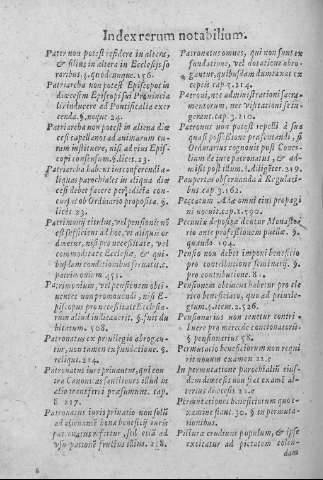 Index rerum notabilium.
Pater non potest residere in altera,
& filius in altera in Ecclesijs so
roribus. §. quodcunque. 156.
Patriarcha non potest Episcopos in
diœcesim Episcopi sui Prouincia
lis inducere ad Pontificalia exer
cenda. §. neque 24.
Patriarcha non potest in aliena diœ
cesi capellanos ad animarum cu-
ram instituere, nisi ad eius Epis-
copi consensum. §. licet. 23.
Patriarcha habens in conferendi a-
liquas parochiales in aliqua diœ
cesi debet facere per
cursus ob Ordinario proposita. §.
licet. 23.
Patrimonij titulus, vel pensionis nō
est sufficiens ad hoc, vt aliquis or
dinetur, nisi pro necessitate, vel
commoditate Ecclesiæ, & qui-
busdam conditionibus seruatis. c.
patrimonium 451.
Patrimonium, vel pensionem obti-
nentes non promouendi, nisi E-
piscopus pro necessitate Ecclesia-
rum aliud iudicauerit. §. fuit du
bitatum. 508.
Patronatus ex priuilegio abrogan-
tur, non tamen ex fundatione. §.
reliqui. 214.
Patronatus iure priuantur, qui con
tra Canonicas sanctiones illud in
alio transferre præsumunt. cap.
8. 217.
Patronatus iuris priuatio non solū
ad alienantē bona beneficij iuris
patronatus refertur, sed etiā ad
vsurpationē fructus illius. 218.
Patronatus omnes, qui non sunt ex
fundatione, vel dotatione abro-
gantur, quibusdam duntaxat ex
ceptis cap. 9. 214.
Patroni, nec administrationi sacra-
mentorum, nec visitationi se in-
gerant. cap. 3. 210.
Patronus non potest repelli à sua
quasi possessione præsentandi, si
Ordinarius cognouit post Conci-
lium de iure patronatus, & ad-
misit post illum. §. diligeter. 219.
Paupertas obseruanda à Regulari-
bus. cap. 3. 162.
Peccatum Adæ omni eius propagi
ni nocuit. cap. 2. 792.
Pecuniæ deposita dentur Monaste-
rio ante professionem puellæ. §.
quando 194.
Pensio non debet imponi beneficio
pro contributione Seminarij. §.
pro contributione. 8 .
Pensionem obtinens habetur pro cle
rico beneficiato, quo ad priuile-
gium. §. item. 2. 526.
Pensionarius non tenetur contri-
buere pro mercede concionatoris.
§ pensionarius 58.
Permutatio beneficiorum non requi
rit nouum examen 21. e
In permutatione parochialiū eius-
dem diœcesis non fiat examē al-
terius diœcesis 21. e
Permutationes beneficiorum quot-
examine fiant 30. § in permuta-
tionibus.
Picturæ erudiunt populum, & ipse
excitatur ad pietatem colen-
dam